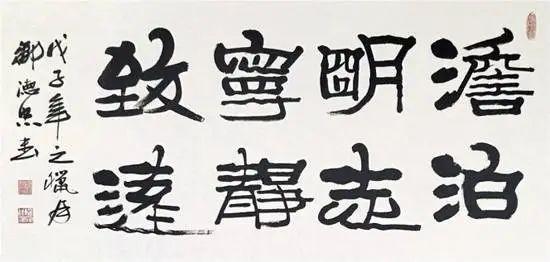 澹泊
明志
寧靜
致遠
戊子年之臘月
鄒德忠書